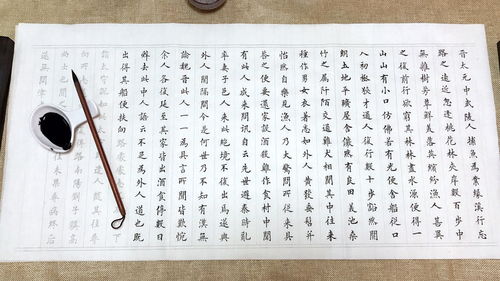 晉太元中武陵人捕魚為業緣溪行忘
路之遠近忽逢桃花林夾岸數百步中
無雜樹芳草鮮美落英繽紛漁人甚異
之復前行欲窮其林林盡水源便得一
山山有小口彷彿若有光便舍船從口
入初極狹才通人復行數十步豁然開
朗土地平曠屋舍儼然有良田美池桑
竹之屬阡陌交通雞犬相聞其中往來
種作男女衣著悉如外人黃髮垂髫並
怡然自樂見漁人乃大驚問所從來具
答之便要還家設酒殺雞作食村中聞
有此人咸來問訊自云先世避秦時亂
率妻子邑人來此絕境不復出焉遂與
外人間隔問今是何世乃不知有漢無
論魏晉此人一一為具言所聞皆歎惋
余人各復延至其家皆出酒食停數日
辭去此中人語云不足為外人道也既
出得其船便扶向路處處下
詣太守說如此遣人隨其往尋
向所路南陽劉子驥高
尚士也聞之往未果尋病終
遂無問津者